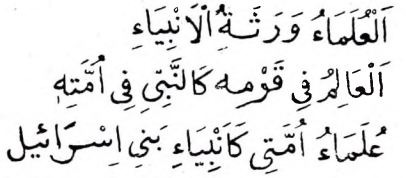 اَلْعُلَمَاءُ وَرَثَةُ الْاَنْبِيَاءِ
اَلْعَالِمُ فِى قَوْمِهِ كَالنَّبِىِّ فِى اُمَّتِهِ
عُلَمَاءُ اُمَّتِى كَاَنْبِيَاءِ بَنِى اِسْرَائِيل